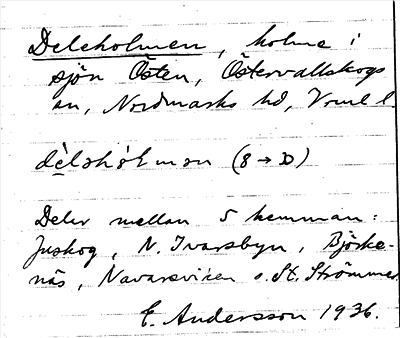 Deleholmen, holme i
sjön Östen, Östervallskogs
sn, Nordmarks hd, Vrml l.
(8 → D)
Delar mellan 5 hemman:
Juskog, N. Ivarsbyn, Björke-
näs, Navarsviken o. St. Strömmer
E. Andersson 1936.